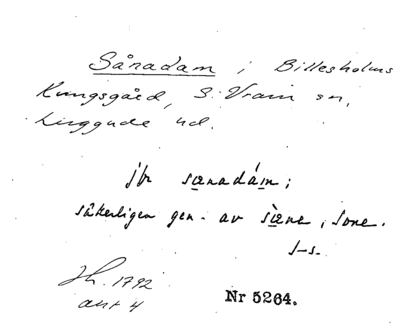 Sånadam i Billesholms
Kungsgård, S. Vram sn,
Luggude hd.
jfr sænadám;
säkerligen gen. av sæne, sone.
S-s.
Jh. 1792
akt 4
Nr 5264.